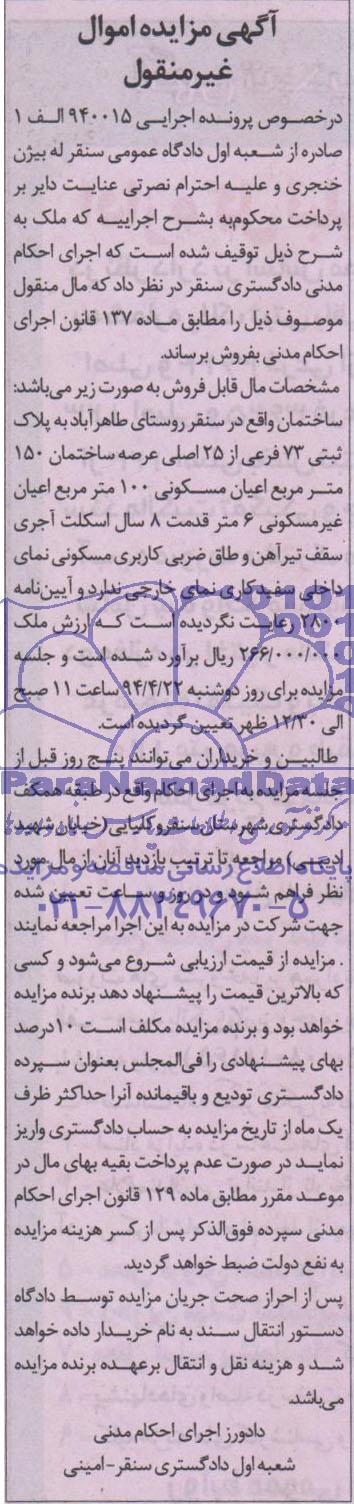 آگهی مزایده اموال
غیرمنقول
درخصوص پرونده اجرایی ۹۴۰۰۱۵ الف ۱
صادره از شعبه اول دادگاه عمومی سنقر له بیژن
خنجری و علیه احترام نصرتی عنایت دایر بر
پرداخت محکوم‌به بشرح اجراییه که ملک به
شرح ذیل توقیف شده است که اجرای احکام
مدنی دادگستری سنقر در نظر داد که مال منقول
موصوف ذیل را مطابق ماده ۱۳۷ قانون اجرای
احکام مدنی بفروش برساند.
مشخصات مال قابل فروش به صورت زیر می‌باشد:
ساختمان واقع در سنقر روستای طاهرآباد به پلاک
ثبتی ۷۳ فرعی از ۲۵ اصلی عرصه ساختمان ۱۵۰
متر مربع اعیان مسکونی ۱۰۰ متر مربع اعیان
غیرمسکونی ۶ متر قدمت ۸ سال اسکلت آجری
سقف تیرآهن و طاق ضربی کاربری مسکونی نمای
داخلی سفیدکاری نمای خارجی ندارد و آیین‌نامه
۲۸۰۰ رعایت نگردیده است که ارزش ملک
۲۶۶/۰۰۰/۰۰۰ ریال برآورد شده است و جلسه
مزایده برای روز دوشنبه ۹۴/۴/۲۲ ساعت ۱۱ صبح
الی ۱۲/۳۰ ظهر تعیین گردیده است.
طالبین و خریداران می‌توانند پنج روز قبل از
جلسه مزایده به اجرای احکام واقع در طبقه همکف
دادگستری شهرستان سنقر و کلیایی (خیابان شهید
ادیبی) مراجعه تا ترتیب بازدید آنان از مال مورد
نظر فراهم شود و در روز و ساعت تعیین شده
جهت شرکت در مزایده به این اجرا مراجعه نمایند
. مزایده از قیمت ارزیابی شروع می‌شود و کسی
که بالاترین قیمت را پیشنهاد دهد برنده مزایده
خواهد بود و برنده مزایده مکلف است ۱۰درصد
بهای پیشنهادی را فی‌المجلس بعنوان سپرده
دادگستری تودیع و باقیمانده آنرا حداکثر ظرف
یک ماه از تاریخ مزایده به حساب دادگستری واریز
نماید در صورت عدم پرداخت بقیه بهای مال در
موعد مقرر مطابق ماده ۱۲۹ قانون اجرای احکام
مدنی سپرده فوق‌الذکر پس از کسر هزینه مزایده
به نفع دولت ضبط خواهد گردید.
پس از احراز صحت جریان مزایده توسط دادگاه
دستور انتقال سند به نام خریدار داده خواهد
شد و هزینه نقل و انتقال برعهده برنده مزایده
می‌باشد.
دادورز اجرای احکام مدنی
شعبه اول دادگستری سنقر-امینی
ParaNamadData
پایگاه اطلاع رسانی مناقصه و مزایده
۰۲۱-۸۸۳۴۹۶۷۰-۵